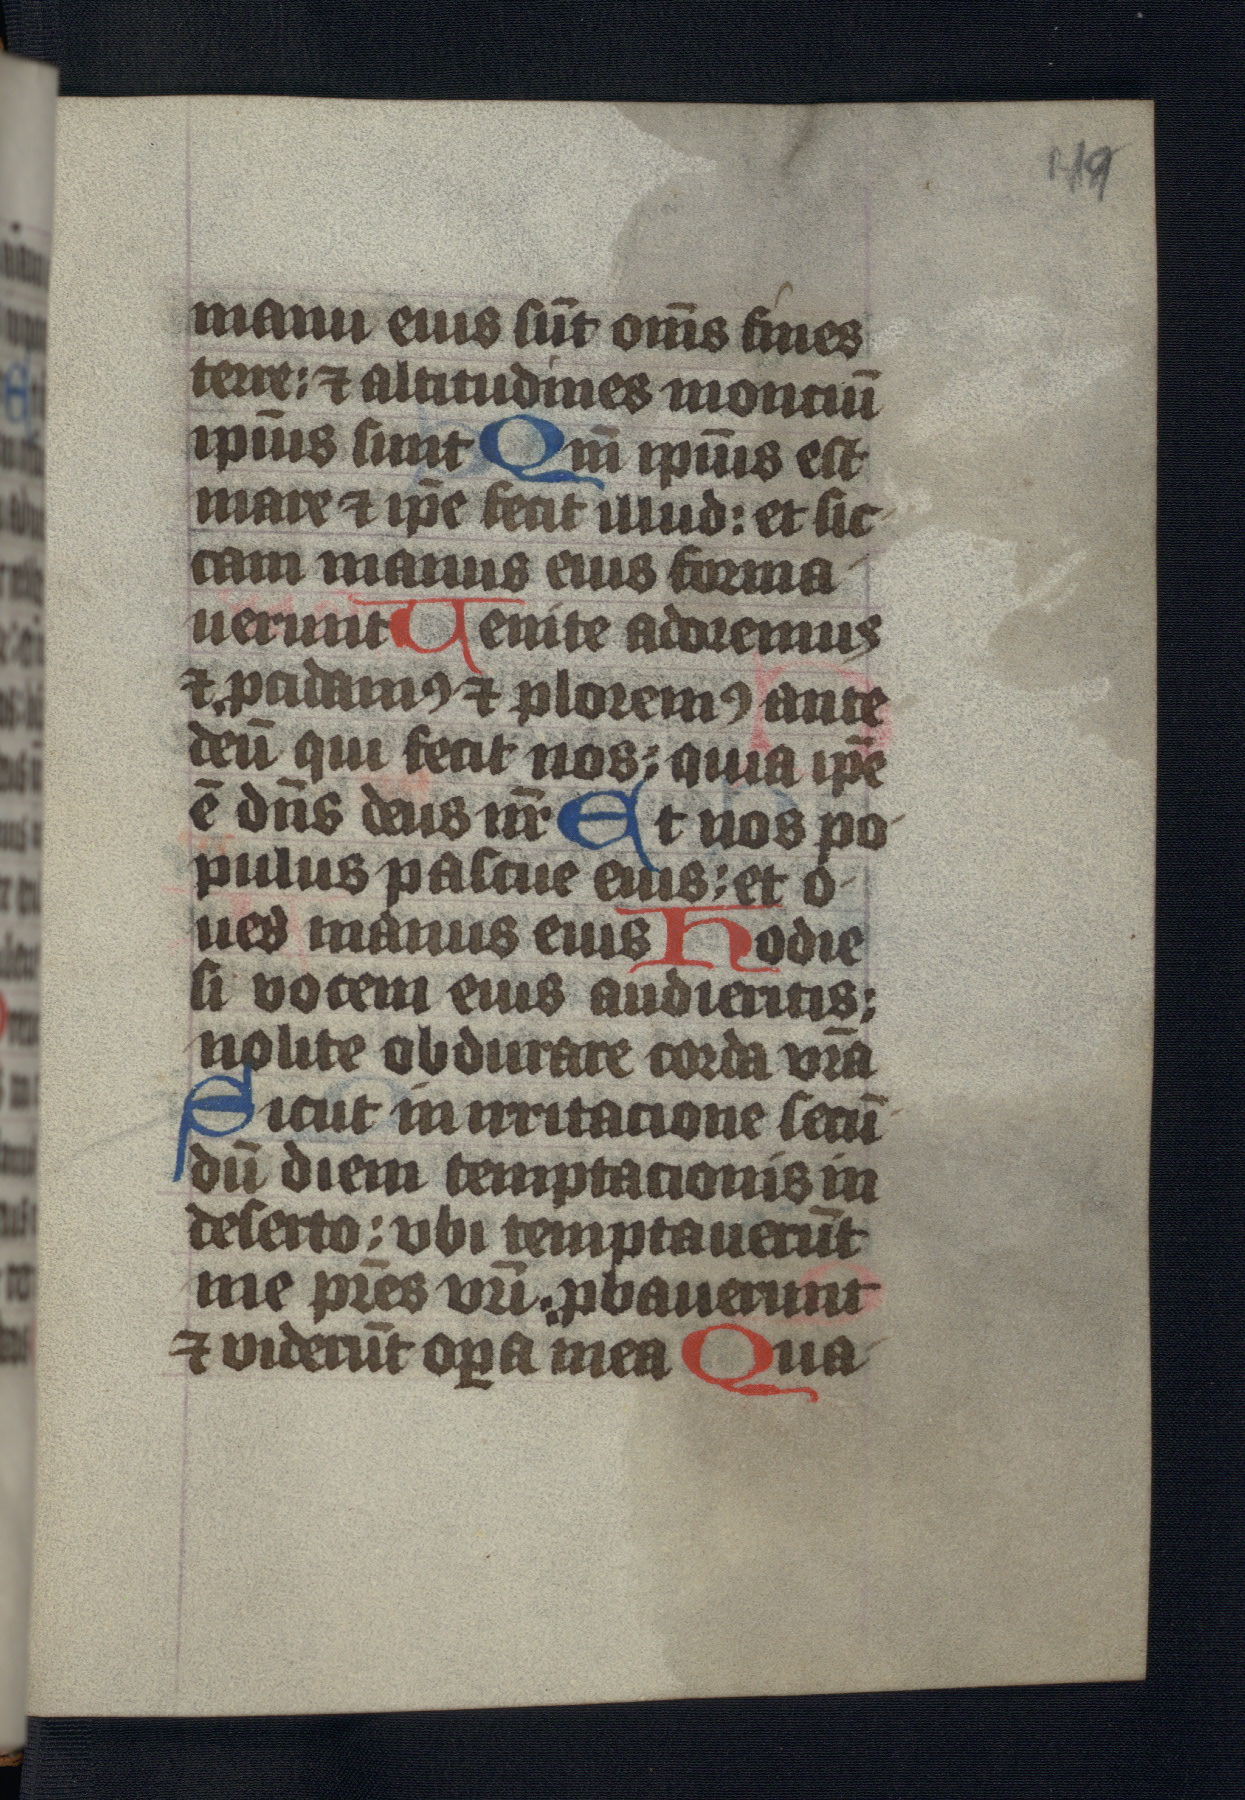 149
manu eius sūt om̄s fines
terre: ⁊ altitudines montiū
ipiūs sunt Qm̄ ipiūs est
mare ⁊ ip̄e fecit illud: et sic-
cam manus eius forma-
uerunt Uenite adoremus
⁊ ꝓcidamꝰ ⁊ ploremꝰ ante
deū qui fecit nos: quia ip̄e
ē dn̄s deus nr̄ Et nos po-
pulus pascue eius: et o-
ues manus eius Hodie
si vocem eius audieritis:
nolite obdurare corda vr̄a
Sicut in irritacione secū-
dū diem temptacionis in
deserto: vbi temptauerūt
me pr̄es vr̄i ꝓbauerunt
⁊ viderūt oꝑa mea Qua-